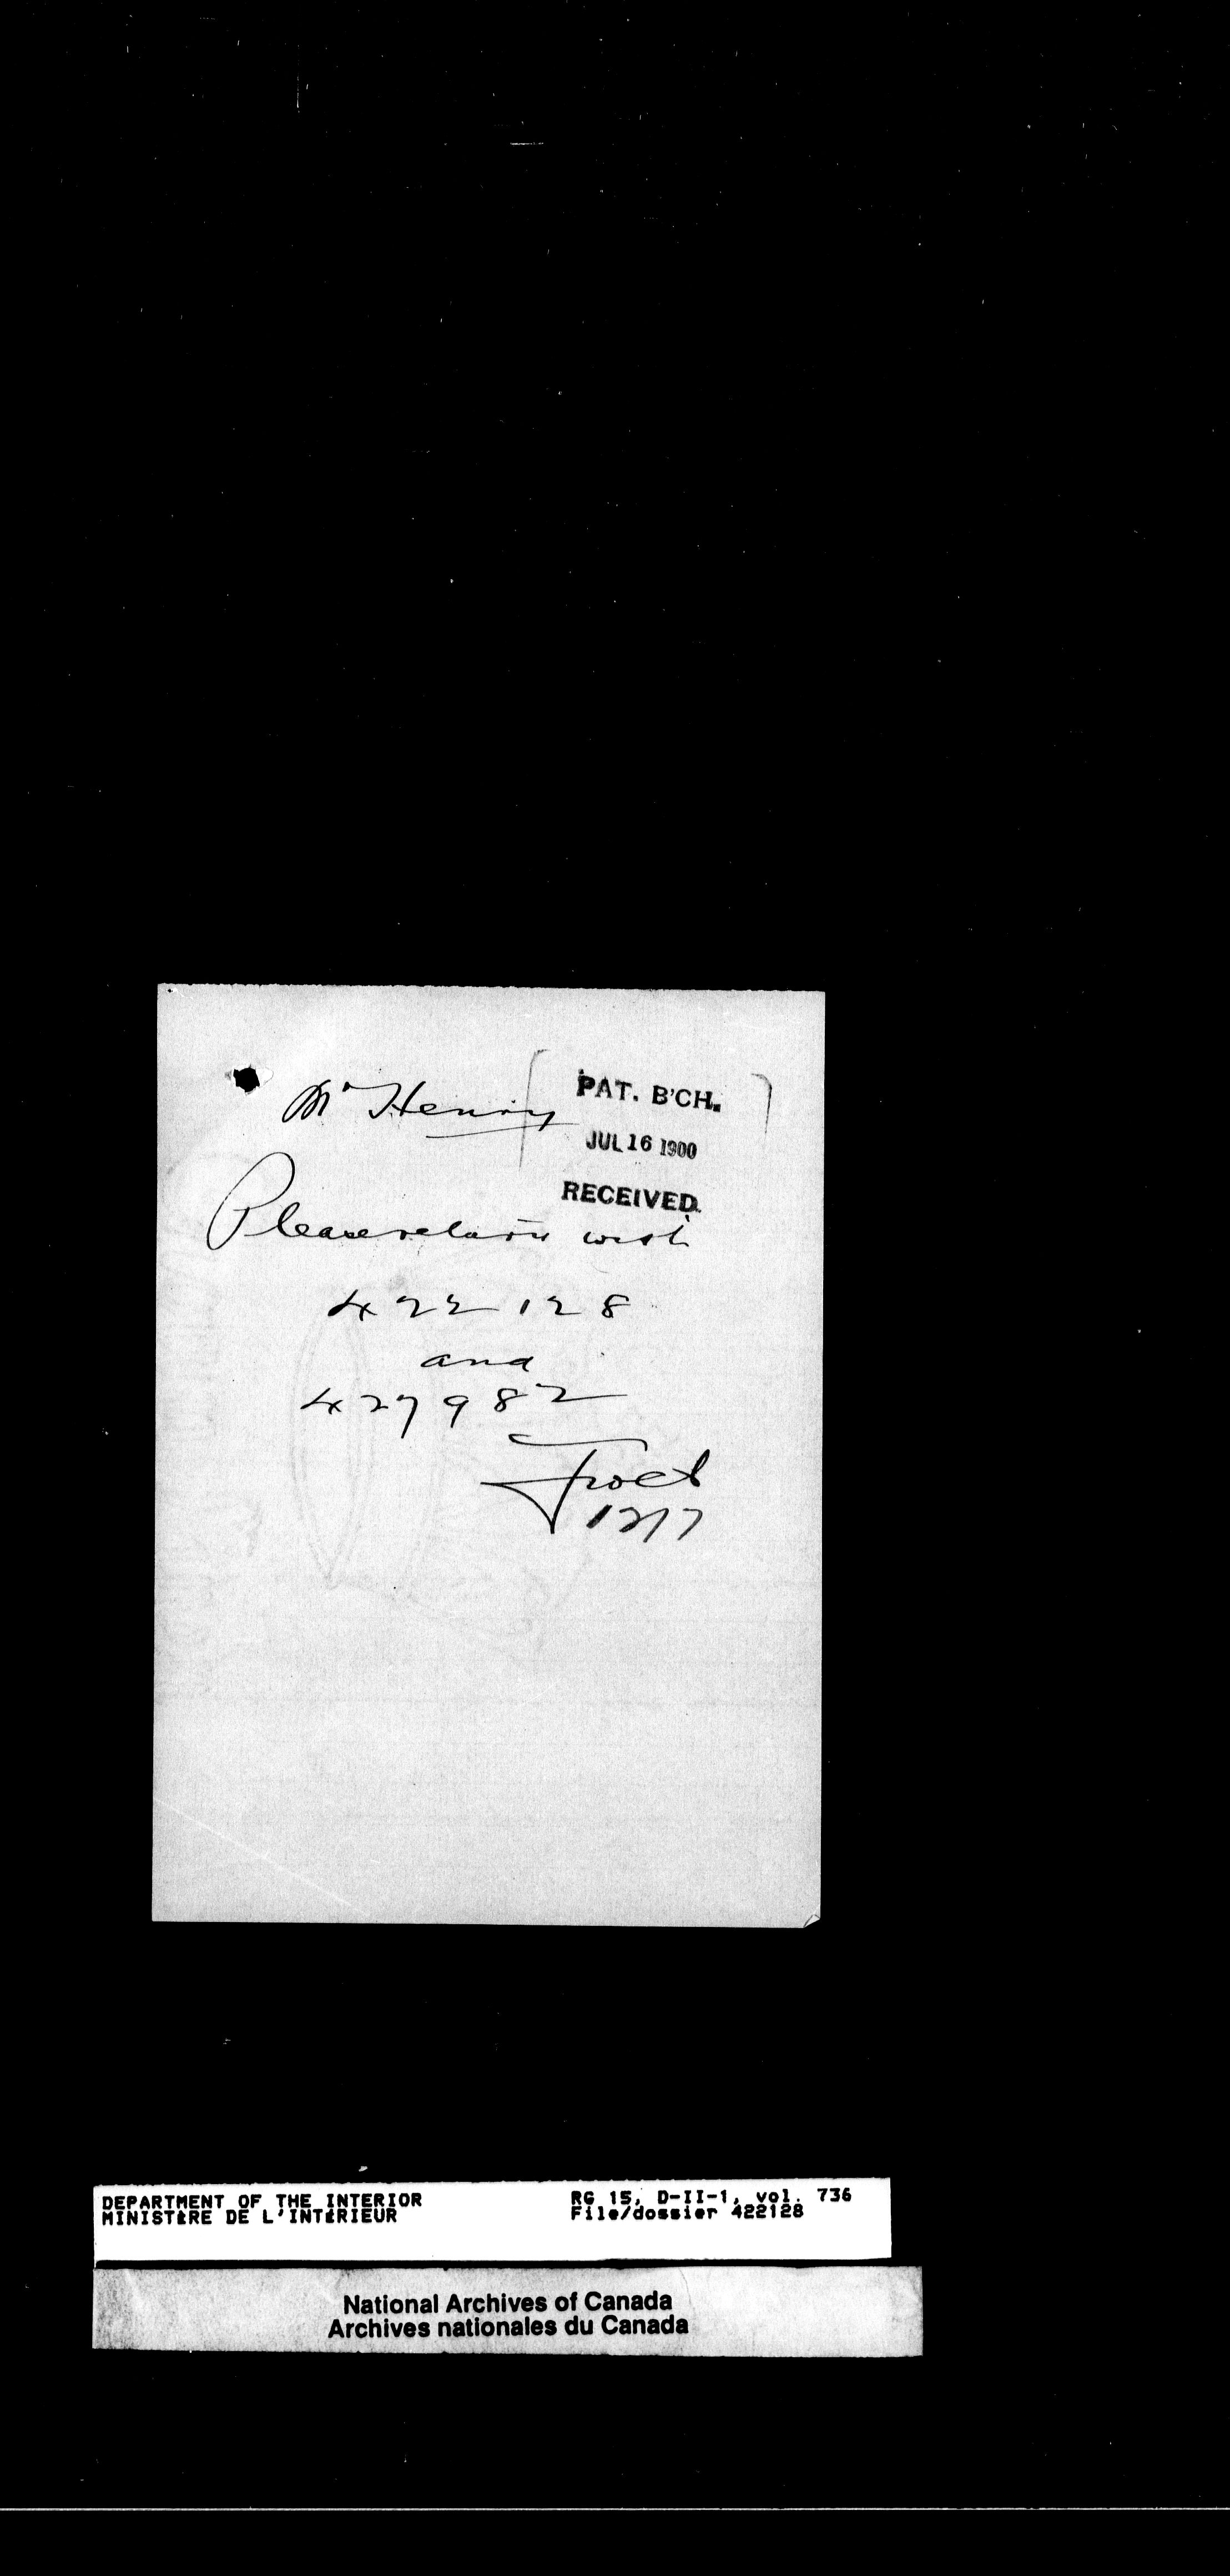 Mr Henry
PAT. B'CH.
JUL 16 1900
RECEIVED.
Please return with
422128
and
427982
12/7
DEPARTMENT OF THE INTERIOR
MINISTÈRE DE L'INTÉRIEUR
RG 15, D-II-1, vol. 736
File/dossier 422128
National Archives of Canada
Archives nationales du Canada